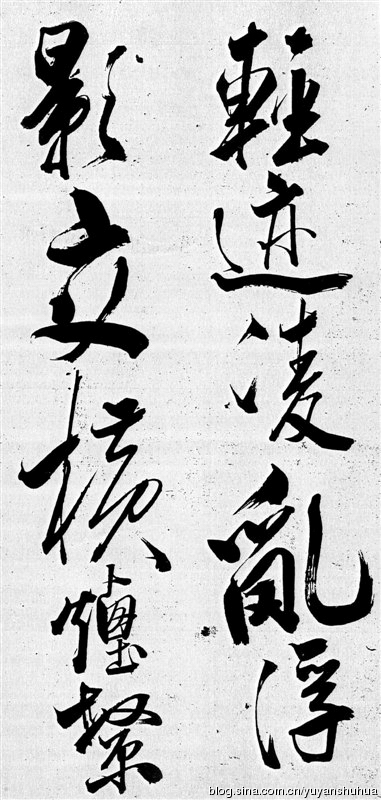 輕迹凌亂浮
影交橫纏
blog.sina.com.cn/yuyanshuhua